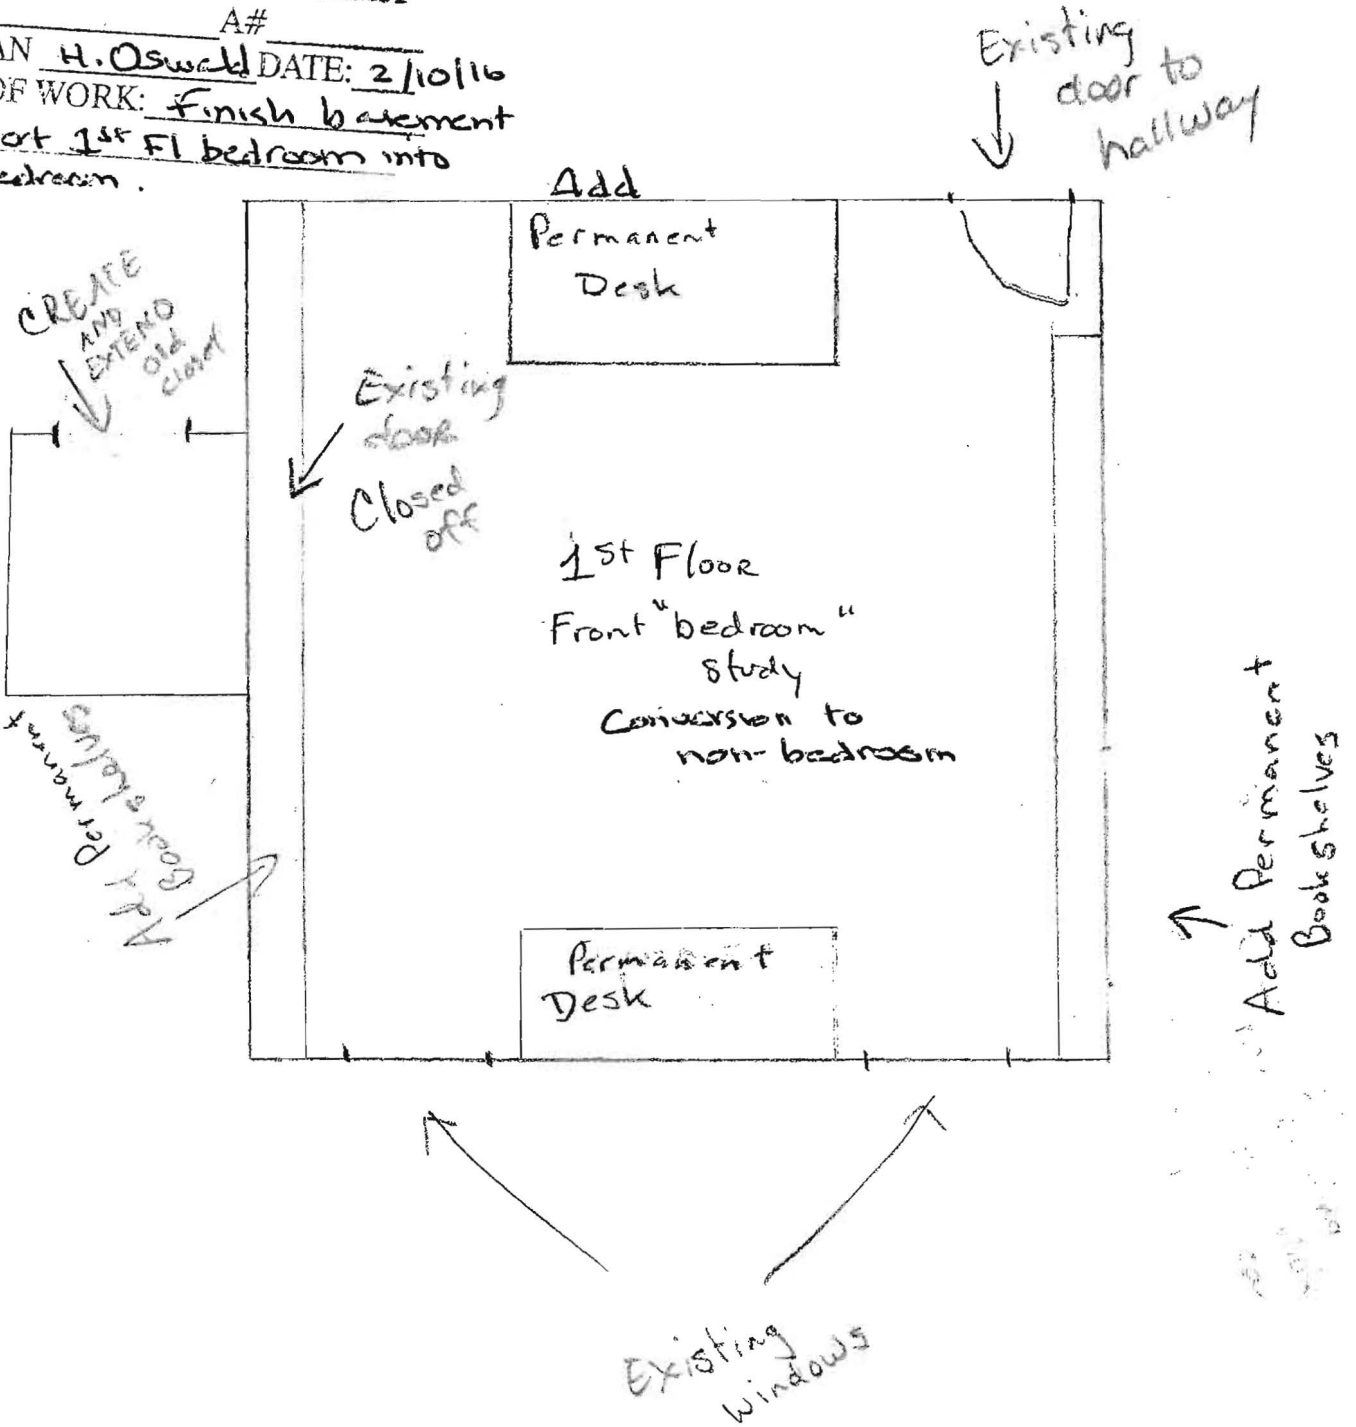 A#
AN H. Oswald DATE: 2/10/16
OF WORK: Finish basement
ort 1st Fl bedroom into
edroom.
Existing
door to
hallway
Add
Permanent
Desk
CREATE
AND
EXTEND
old
closet
Existing
door
Closed
off
1st Floor
Front "bedroom"
study
Conversion to
non-bedroom
Add Permanent
Bookshelves
Add Permanent
Bookshelves
Permanent
Desk
Existing
windows